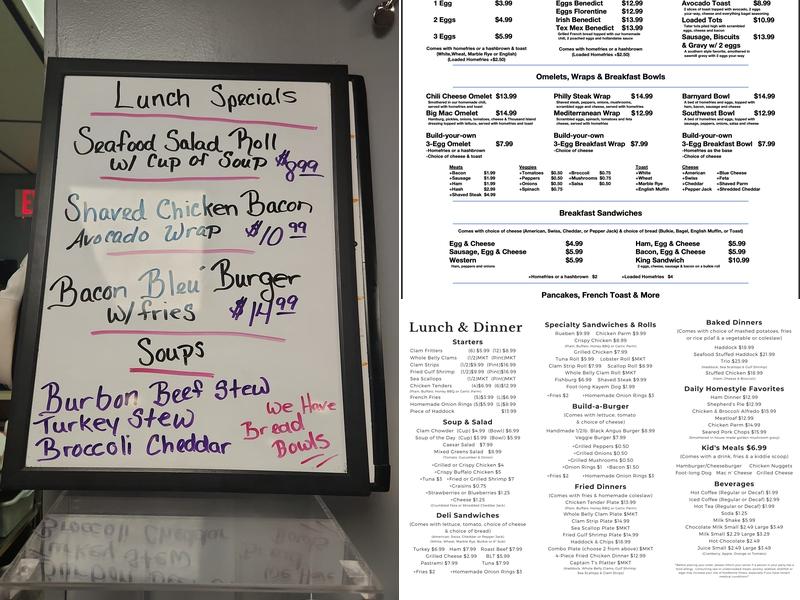 Lunch Specials
Seafood Salad Roll
w/ Cup of Soup $8.99
Shaved Chicken Bacon
Avocado Wrap $10.99
Bacon Bleu Burger
w/ fries $14.99
Soups
Burbon Beef Stew
Turkey Stew
Broccoli Cheddar
We Have
Bread
Bowls
1 Egg $3.99
2 Eggs $4.99
3 Eggs $5.99
Comes with homefries or hashbrown & toast
(White, Wheat, Marble Rye or English)
(Loaded Homefries +$2.50)
Eggs Benedict $12.99
Eggs Florentine $12.99
Irish Benedict $13.99
Tex Mex Benedict $13.99
Grilled French bread topped with our homemade
chili, 2 poached eggs and hollandaise sauce
Comes with homefries or hashbrown
(Loaded Homefries +$2.50)
Avocado Toast $8.99
2 slices of toast topped with avocado, 2 eggs
your way, and everything bagel seasoning
Loaded Tots $10.99
Tater tots piled high with scrambled
eggs, cheese and bacon
Sausage, Biscuits $13.99
& Gravy w/ 2 eggs
A southern style favorite, smothered in
sawmill gravy with 2 eggs your way
Omelets, Wraps & Breakfast Bowls
Chili Cheese Omelet $13.99
Smothered in our homemade chili,
served with homefries and toast
Big Mac Omelet $14.99
Hamburg, pickles, onions, tomatoes, cheese & Thousand Island
dressing topped with lettuce, served with homefries and toast
Build-your-own
3-Egg Omelet $7.99
-Homefries or hashbrown
-Choice of cheese & toast
Philly Steak Wrap $14.99
Shaved steak, peppers, onions, mushrooms,
scrambled eggs and cheese, served with homefries
Mediterranean Wrap $12.99
Scrambled eggs, spinach, tomatoes and feta
cheese, served with homefries
Build-your-own
3-Egg Breakfast Wrap $7.99
-Choice of cheese
Barnyard Bowl $14.99
A bed of homefries and eggs, topped with
ham, bacon, sausage and cheese
Southwest Bowl $12.99
A bed of homefries and eggs, topped with
sausage, peppers, onions, salsa and cheese
Build-your-own
3-Egg Breakfast Bowl $7.99
-Homefries as the base
-Choice of cheese
Meats
+Bacon $1.99
+Sausage $1.99
+Ham $1.99
+Hash $2.99
+Shaved Steak $4.99
Veggies
+Tomatoes $0.50
+Peppers $0.50
+Onions $0.50
+Spinach $0.75
+Broccoli $0.75
+Mushrooms $0.75
+Salsa $0.50
Toast
+White
+Wheat
+Marble Rye
+English Muffin
Cheese
+American
+Swiss
+Cheddar
+Pepper Jack
+Blue Cheese
+Feta
+Shaved Parm
+Shredded Cheddar
Breakfast Sandwiches
Comes with choice of cheese (American, Swiss, Cheddar, or Pepper Jack) & choice of bread (Bulkie, Bagel, English Muffin, or Toast)
Egg & Cheese $4.99
Sausage, Egg & Cheese $5.99
Western $5.99
Ham, peppers and onions
Ham, Egg & Cheese $5.99
Bacon, Egg & Cheese $5.99
King Sandwich $10.99
2 eggs, cheese, sausage & bacon on a bulkie roll
+Homefries or hashbrown $2
+Loaded Homefries $4
Pancakes, French Toast & More
Lunch & Dinner
Starters
Clam Fritters (6) $5.99 (12) $8.99
Whole Belly Clams (1/2)MKT (Pint)MKT
Clam Strips (1/2)$9.99 (Pint)$16.99
Fried Gulf Shrimp (1/2)$9.99 (Pint)$14.99
Sea Scallops (1/2)MKT (Pint)MKT
Chicken Tenders (4)$6.99 (6)$12.99
French Fries (S)$3.99 (L)$5.99
Homemade Onion Rings (S)$5.99 (L)$8.99
Piece of Haddock $13.99
Soup & Salad
Clam Chowder (Cup) $4.99 (Bowl) $6.99
Soup of the Day (Cup) $3.99 (Bowl) $5.99
Caesar Salad $7.99
Mixed Greens Salad $8.99
+Grilled or Crispy Chicken $4
+Crispy Buffalo Chicken $5
+Tuna $3 +Fried or Grilled Shrimp $7
+Craisins $0.75
+Strawberries or Blueberries $1.25
+Cheese $1.25
Deli Sandwiches
(Comes with lettuce, tomato, choice of cheese
& choice of bread)
Turkey $6.99 Ham $7.99 Roast Beef $7.99
Grilled Cheese $2.99 BLT $5.99
Pastrami $7.99 Tuna $7.99
+Fries $2 +Homemade Onion Rings $3
Specialty Sandwiches & Rolls
Rueben $9.99 Chicken Parm $9.99
Crispy Chicken $8.99
Grilled Chicken $7.99
Tuna Roll $5.99 Lobster Roll $MKT
Clam Strip Roll $7.99 Scallop Roll $8.99
Whole Belly Clam Roll $MKT
Fishburg $6.99 Shaved Steak $9.99
Foot long Kayem Dog $1.99
+Fries $2 +Homemade Onion Rings $3
Build-a-Burger
(Comes with lettuce, tomato
& choice of cheese)
Handmade 1/2lb. Black Angus Burger $8.99
Veggie Burger $7.99
+Grilled Peppers $0.50
+Grilled Onions $0.50
+Grilled Mushrooms $0.50
+Onion Rings $1 +Bacon $1.50
+Fries $2 +Homemade Onion Rings $3
Fried Dinners
(Comes with fries & homemade coleslaw)
Chicken Tender Plate $13.99
Whole Belly Clam Plate $MKT
Clam Strip Plate $14.99
Sea Scallop Plate $MKT
Fried Gulf Shrimp Plate $14.99
Haddock & Chips $18.99
Combo Plate (choose 2 from above) $MKT
4-Piece Fried Chicken Dinner $12.99
Captain T's Platter $MKT
Baked Dinners
(Comes with choice of mashed potatoes, fries
or rice pilaf & a vegetable or coleslaw)
Haddock $19.99
Seafood Stuffed Haddock $21.99
Trio $23.99
Stuffed Chicken $18.99
Daily Homestyle Favorites
Ham Dinner $12.99
Shepherd's Pie $12.99
Chicken & Broccoli Alfredo $15.99
Meatloaf $12.99
Chicken Parm $14.99
Seared Pork Chops $15.99
Kid's Meals $6.99
(Comes with a drink, fries & a kiddie scoop)
Hamburger/Cheeseburger Chicken Nuggets
Foot-long Dog Mac n' Cheese Grilled Cheese
Beverages
Hot Coffee (Regular or Decaf) $1.99
Iced Coffee (Regular or Decaf) $2.99
Hot Tea (Regular or Decaf) $1.99
Soda $1.25
Milk Shake $5.99
Chocolate Milk Small $2.49 Large $3.49
Milk Small $2.29 Large $3.29
Hot Chocolate $2.49
Juice Small $2.49 Large $3.49
(Cranberry, Apple, Orange or Tomato)